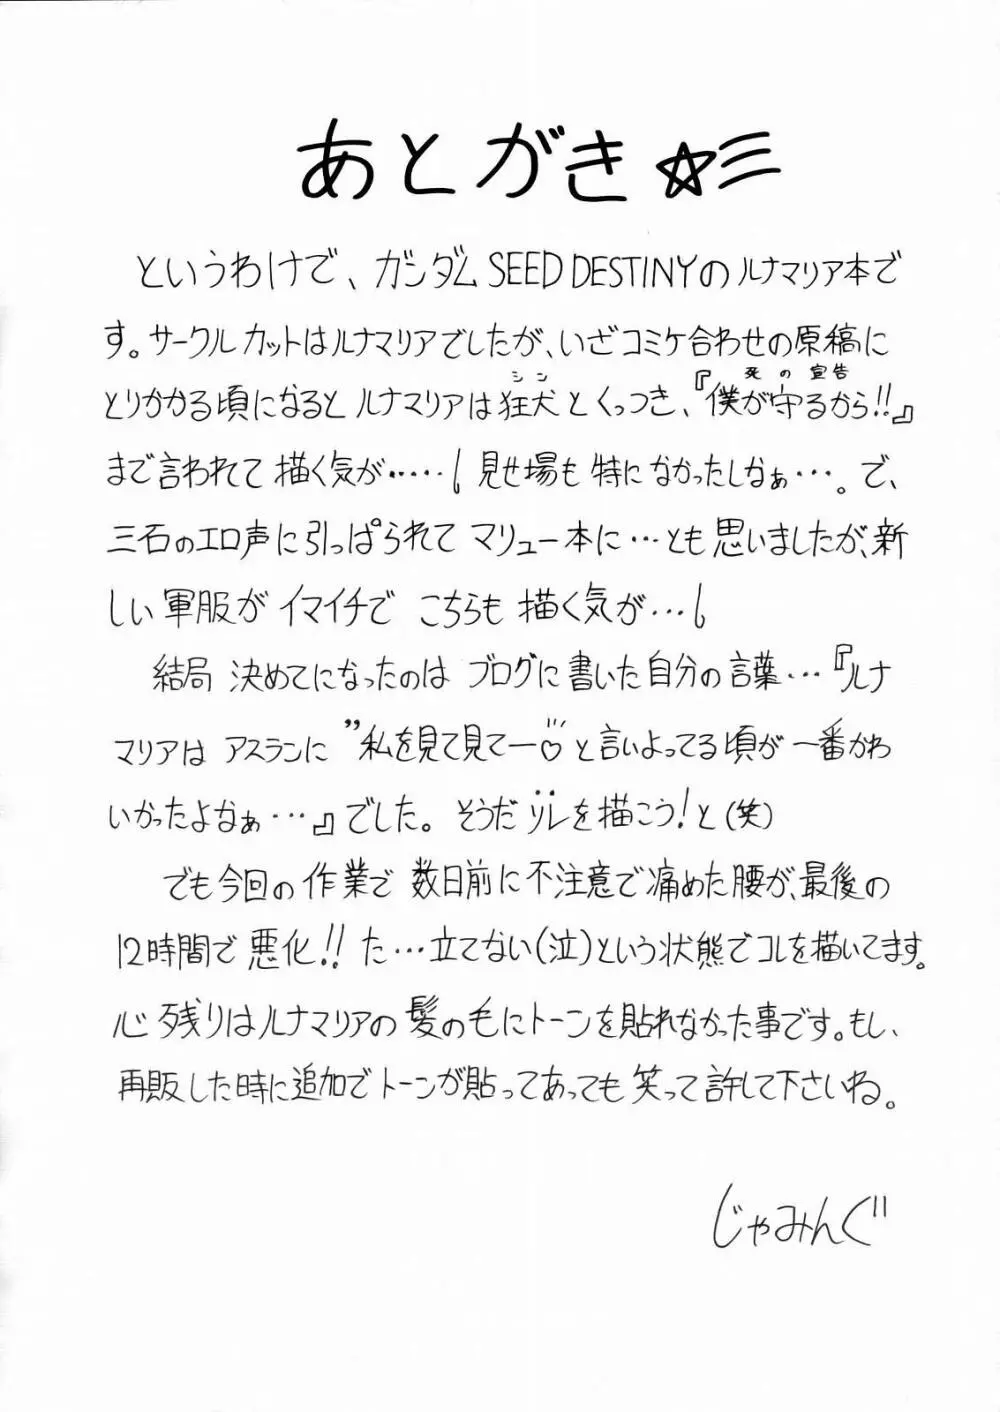 あとがき☆彡
というわけで、ガンダムSEED DESTINYのルナマリア本で
す。サークルカットはルナマリアでしたが、いざコミケ合わせの原稿に
シン 死の宣告
とりかかる頃になるとルナマリアは狂犬とくっつき、『僕が守るから!!』
まで言われて描く気が……。見せ場も特になかったしなぁ…。で、
三石のエロ声に引っぱられてマリュー本に…とも思いましたが、新
しい軍服がイマイチでこちらも描く気が…。
結局決めてになったのはブログに書いた自分の言葉…『ルナ
マリアはアスランに”私を見て見てー♡”と言いよってる頃が一番かわ
いかったよなぁ…』でした。そうだソレを描こう!と(笑)
でも今回の作業で数日前に不注意で痛めた腰が、最後の
12時間で悪化!!た…立てない(泣)という状態でコレを描いてます。
心残りはルナマリアの髪の毛にトーンを貼れなかった事です。もし、
再販した時に追加でトーンが貼ってあっても笑って許して下さいね。
じゃみんぐ